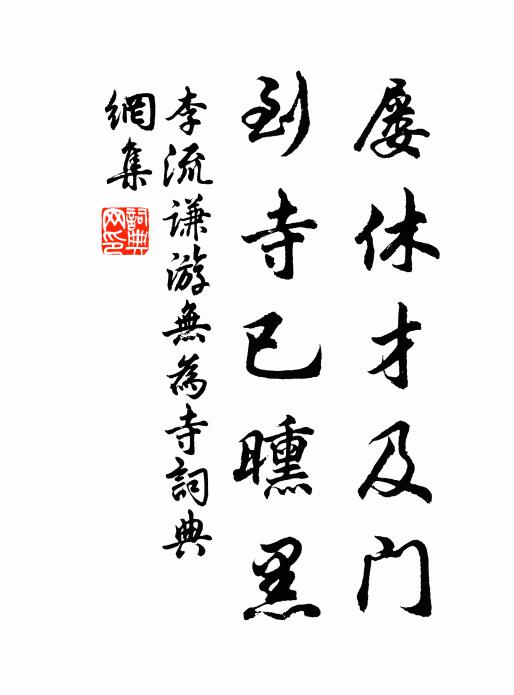 屡休才及门
到寺已曛黑
李流謙游無為寺詞典
網集
詞典
网印